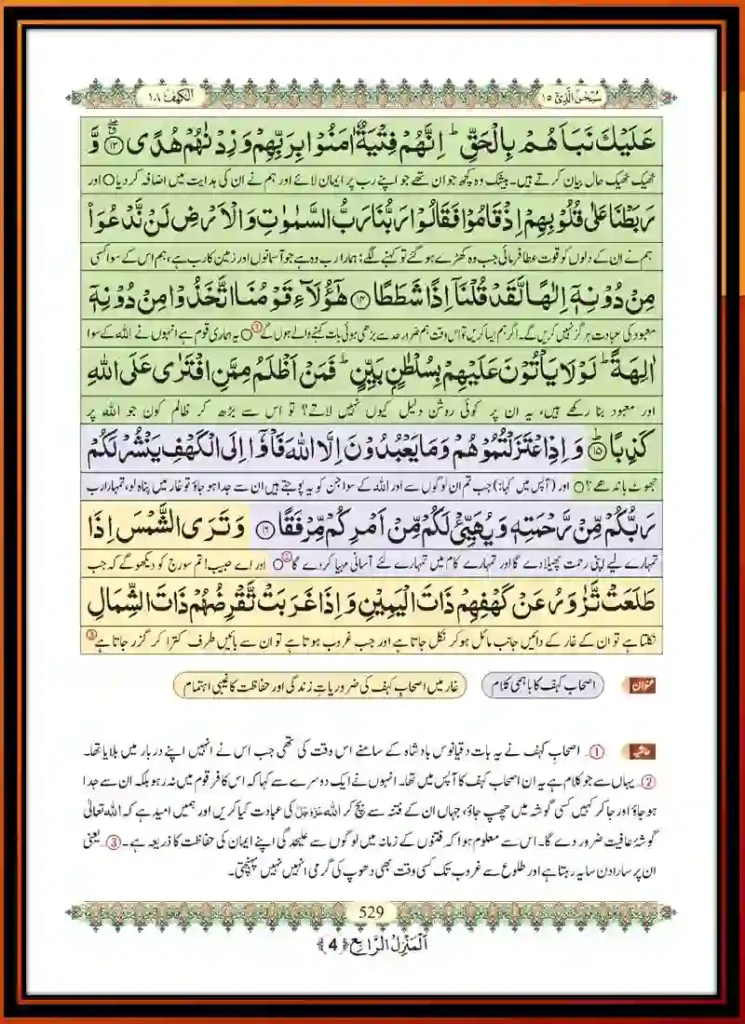 سُبْحٰنَ الَّذِیْۤ ۱۵
الکھف ۱۸
عَلَیْكَ نَبَاَهُمْ بِالْحَقِّؕ اِنَّهُمْ فِتْیَةٌ اٰمَنُوْا بِرَبِّهِمْ وَ زِدْنٰهُمْ هُدًىۗۖ ﴿۱۳﴾ وَّ
ٹھیک ٹھیک حال بیان کرتے ہیں۔ بیشک وہ کچھ جوان تھے جو اپنے رب پر ایمان لائے اور ہم نے ان کی ہدایت میں اضافہ کردیا ○ اور
رَبَطْنَا عَلٰى قُلُوْبِهِمْ اِذْ قَامُوْا فَقَالُوْا رَبُّنَا رَبُّ السَّمٰوٰتِ وَ الْاَرْضِ لَنْ نَّدْعُوَاۡ
ہم نے ان کے دلوں کو قوت عطا فرمائی جب وہ کھڑے ہوگئے تو کہنے لگے: ہمارا رب وہ ہے جو آسمانوں اور زمین کا رب ہے، ہم اس کے سوا کسی
مِنْ دُوْنِهٖۤ اِلٰهًا لَّقَدْ قُلْنَاۤ اِذًا شَطَطًا ﴿۱۴﴾ هٰۤؤُلَآءِ قَوْمُنَا اتَّخَذُوْا مِنْ دُوْنِهٖۤ
معبود کی عبادت ہرگز نہیں کریں گے۔ اگر ہم ایسا کریں تو اس وقت ہم ضرور حد سے بڑھی ہوئی بات کہنے والے ہوں گے ① ○ یہ ہماری قوم ہے انہوں نے اللہ کے سوا
اٰلِهَةًؕ لَوْ لَا یَاْتُوْنَ عَلَیْهِمْ بِسُلْطٰنٍۭ بَیِّنٍؕ فَمَنْ اَظْلَمُ مِمَّنِ افْتَرٰى عَلَى اللّٰهِ
اور معبود بنا رکھے ہیں، یہ ان پر کوئی روشن دلیل کیوں نہیں لاتے؟ تو اس سے بڑھ کر ظالم کون جو اللہ پر
كَذِبًاؕ ﴿۱۵﴾ وَ اِذِ اعْتَزَلْتُمُوْهُمْ وَ مَا یَعْبُدُوْنَ اِلَّا اللّٰهَ فَاْوٗۤا اِلَى الْكَهْفِ یَنْشُرْ لَكُمْ
جھوٹ باندھے؟ ○ اور (آپس میں کہا:) جب تم ان لوگوں سے اور اللہ کے سوا جن کو یہ پوجتے ہیں ان سے جدا ہوجاؤ تو غار میں پناہ لو، تمہارا رب
رَبُّكُمْ مِّنْ رَّحْمَتِهٖ وَ یُهَیِّئْ لَكُمْ مِّنْ اَمْرِكُمْ مِّرْفَقًا ﴿۱۶﴾ وَ تَرَى الشَّمْسَ اِذَا
تمہارے لیے اپنی رحمت پھیلا دے گا اور تمہارے کام میں تمہارے لئے آسانی مہیا کردے گا ② ○ اور اے حبیب! تم سورج کو دیکھو گے کہ جب
طَلَعَتْ تَّزٰوَرُ عَنْ كَهْفِهِمْ ذَاتَ الْیَمِیْنِ وَ اِذَا غَرَبَتْ تَّقْرِضُهُمْ ذَاتَ الشِّمَالِ
نکلتا ہے تو ان کے غار کے دائیں جانب مائل ہوکر نکل جاتا ہے اور جب غروب ہوتا ہے تو ان سے بائیں طرف کترا کر گزر جاتا ہے ③
عنوان اصحاب کہف کا باہمی کلام غار میں اصحاب کہف کی ضروریاتِ زندگی اور حفاظت کا غیبی اہتمام
حاشیہ ①۔ اصحاب کہف نے یہ بات دقیانوس بادشاہ کے سامنے اس وقت کی تھی جب اس نے انہیں اپنے دربار میں بلایا تھا۔
②۔ یہاں سے جو کلام ہے یہ ان اصحاب کہف کا آپس میں تھا۔ انہوں نے ایک دوسرے سے کہا کہ اس کافر قوم میں نہ رہو بلکہ ان سے جدا
ہوجاؤ اور جا کر کہیں کسی گوشہ میں چھپ جاؤ، جہاں ان کے فتنہ سے بچ کر اللہ عَزَّوَجَلَّ کی عبادت کیا کریں اور ہمیں امید ہے کہ اللہ تعالیٰ
گوشۂ عافیت ضرور دے گا۔ اس سے معلوم ہوا کہ فتنوں کے زمانہ میں لوگوں سے علیحدگی اپنے ایمان کی حفاظت کا ذریعہ ہے۔ ③۔ یعنی
ان پر سارا دن سایہ رہتا ہے اور طلوع سے غروب تک کسی وقت بھی دھوپ کی گرمی انہیں نہیں پہنچتی۔
529
اَلْمَنْزِلُ الرَّابِع ﴿4﴾